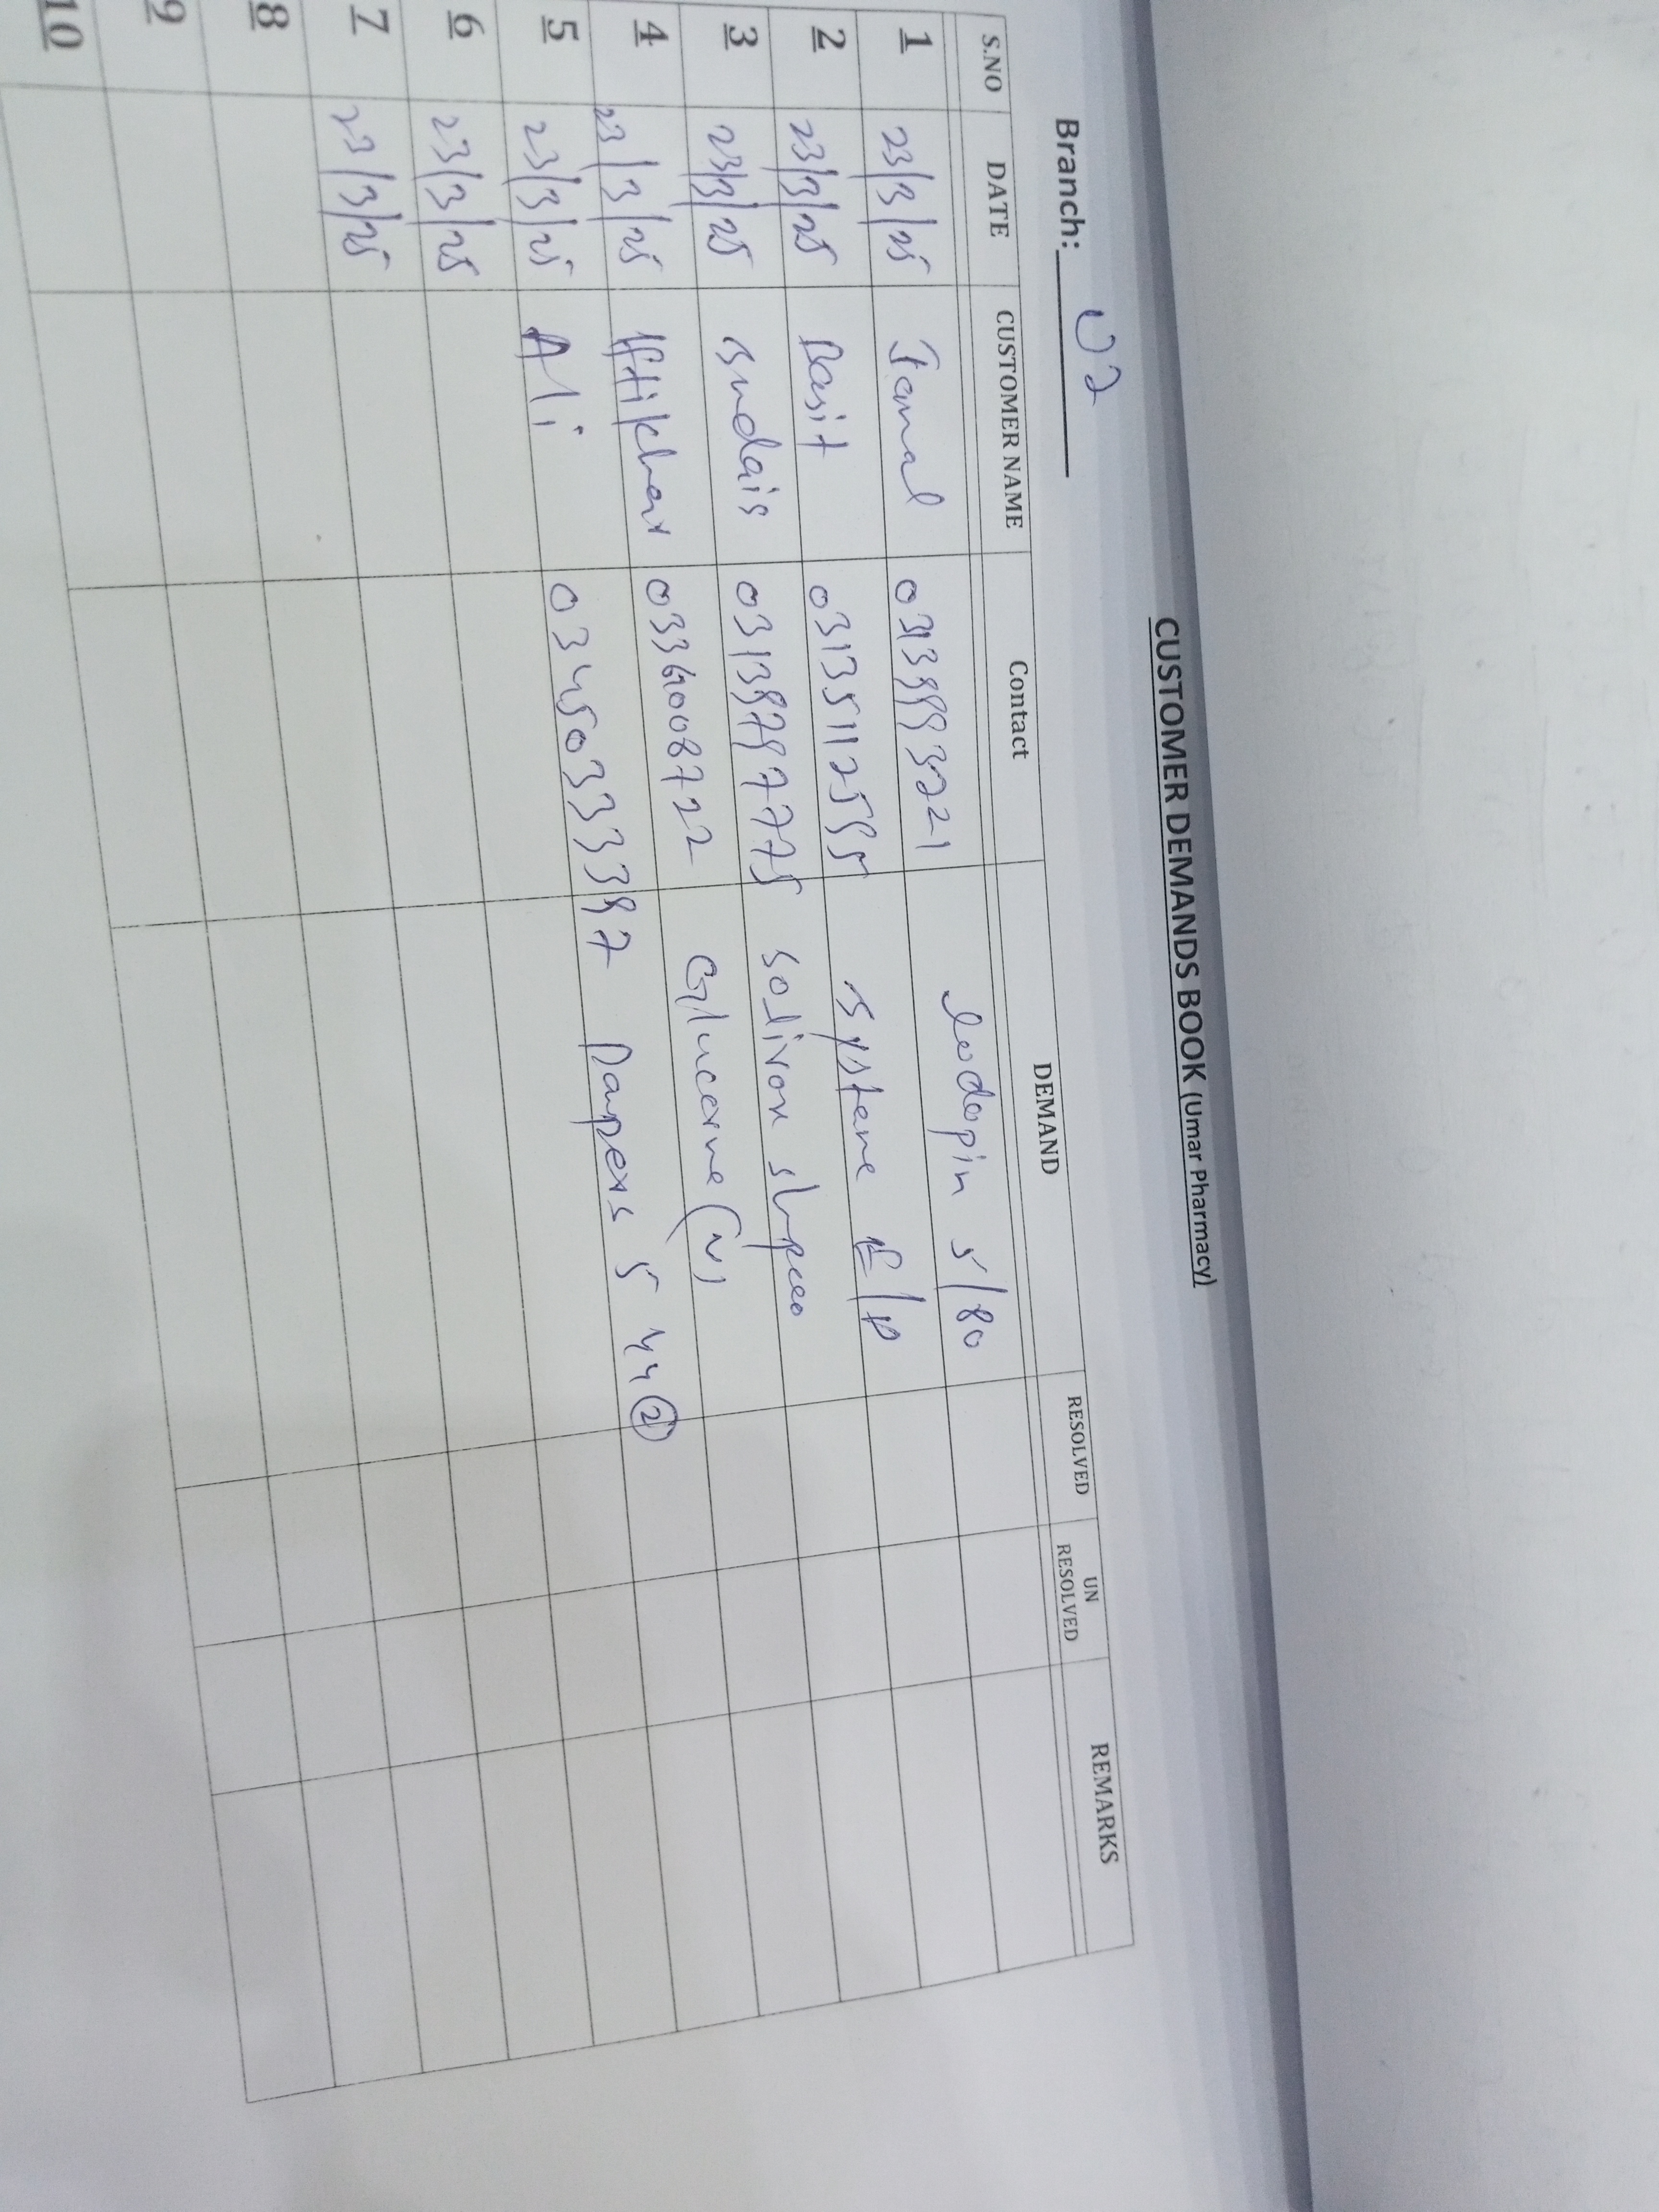 CUSTOMER DEMANDS BOOK (Umar Pharmacy)
Branch: 02
S.NO DATE CUSTOMER NAME Contact DEMAND RESOLVED UN RESOLVED REMARKS
1 23/3/25 Jamal 5/80
2 23/3/25 Basit systane E/D
3 23/3/25 sudais
4 23/3/25 Iftikhar 03369008722 Glucerna (V)
5 23/3/25 Ali 03450333397 Dampers 5 44 2
6 23/3/25
7 23/3/25
8
9
10